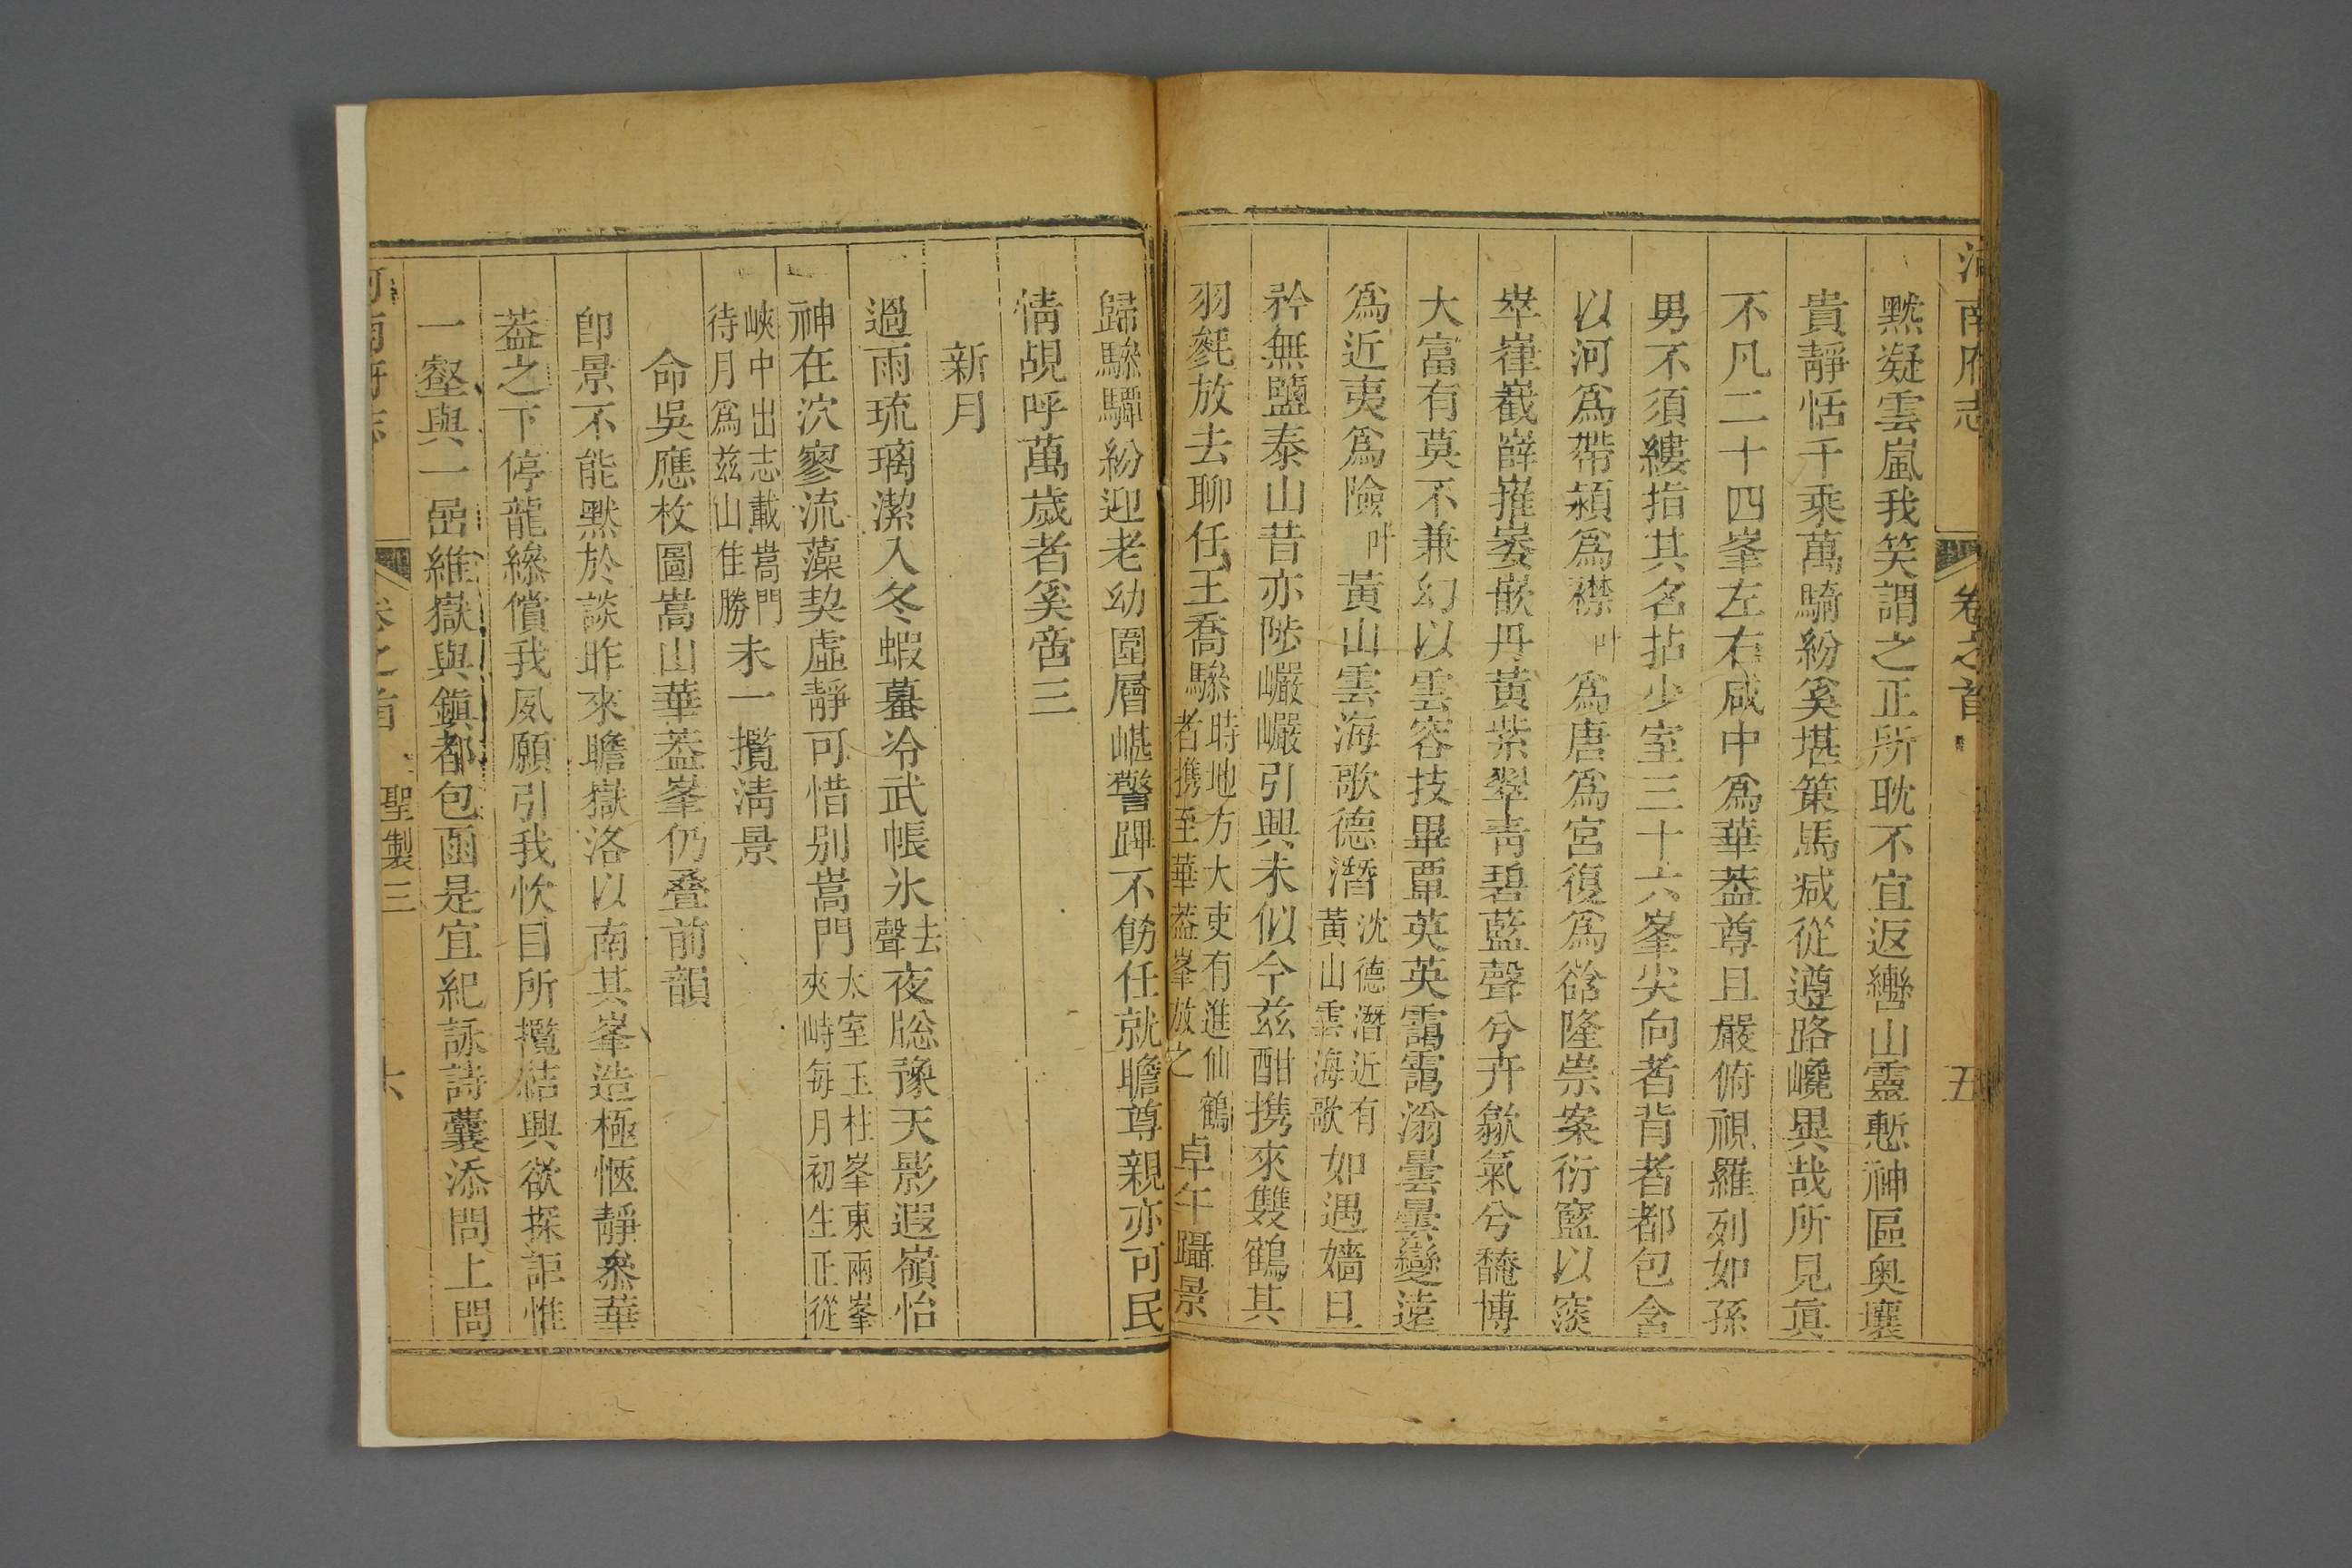 河南府志　卷之首　五
黙凝雲嵐我笑謂之正所耽不宜返轡山靈慙神區奥壤
貴靜恬千乘萬騎紛奚堪策馬減從遵路巉異哉所見真
不凡二十四峯左右咸中為華葢尊且嚴俯視羅列如孫
男不須縷指其名拈少室三十六峯尖向者背者都包含
以河為帶潁為襟叶為唐為宮復為㟏隆崇案衍窳以窽
崒嵂嶻嶭摧崣嵌丹黃紫翠青碧藍聲兮卉歙氣兮馣博
大富有莫不兼幻以雲容技畢覃英英靄靄滃曇曇變遠
為近夷為險叶黃山雲海歌德潛沈德潛近有黃山雲海歌如遇嬙旦
矜無鹽泰山昔亦陟巗巗引興未似今兹酣携來雙鶴其
羽毿放去聊任王喬驂時地方大吏有進仙鶴者携至華葢峯放之卓午躡景
歸驂驔紛迎老幼圍層嵁警蹕不飭任就瞻尊親亦可民
情覘呼萬歲者奚啻三
新月
過雨琉璃潔入冬蝦蟇冷武帳氷去聲夜牎豫天影遐嶺怡
神在泬寥流藻契虛靜可惜别嵩門太室玉柱峯東兩峯夾峙每月初生正從
峽中出志載嵩門待月為兹山佳勝未一攬淸景
命吳應枚圖嵩山華葢峯仍叠前韻
卽景不能黙於談昨來瞻嶽洛以南其峯造極愜靜叅華
葢之下停龍縿償我夙願引我忺目所攬結興欲探詎惟
一壑與一嵒維嶽與鎭都包圅是宜紀詠詩囊添問上問
河南府志　卷之首　聖製三　六